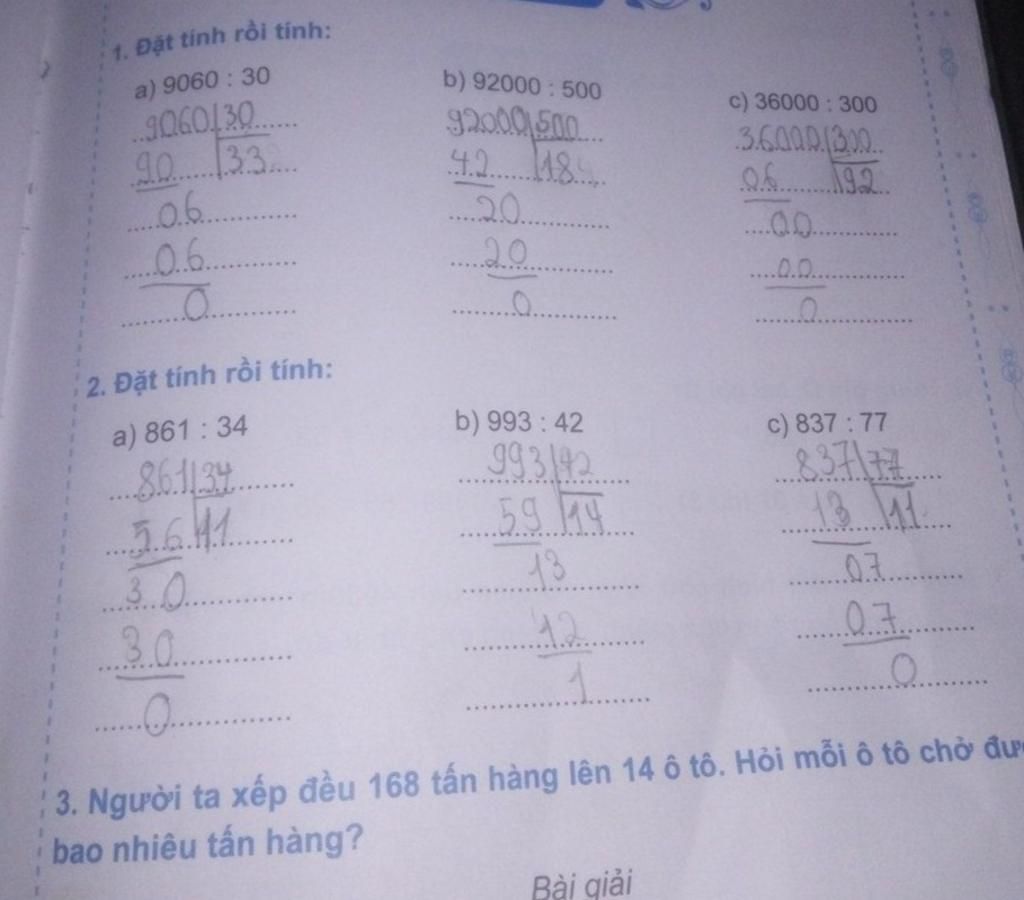 1. Đặt tính rồi tính:
a) 9060 : 30
b) 92000 : 500
c) 36000 : 300
9060 30
92000 500
36000 300
90 33
42 18
06 92
06
20
00
06
20
00
0
0
0
2. Đặt tính rồi tính:
a) 861 : 34
b) 993 : 42
c) 837 : 77
861 34
993 42
837 77
56 11
59 14
13 11
30
13
07
30
12
07
0
1
0
3. Người ta xếp đều 168 tấn hàng lên 14 ô tô. Hỏi mỗi ô tô chở
bao nhiêu tấn hàng?
Bài giải